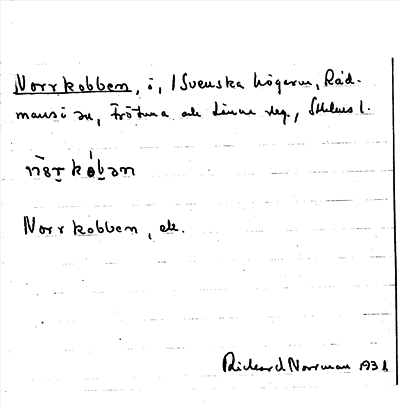 Norrkobben, i, / Svenska högarna, Råd-
mansö sn, Frötuna och Länna skg, Sthlms l.
Norrkobben, ek.
Rickard Norrman 193